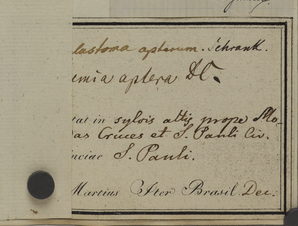 lastoma apterum. Schrank.
emia aptera DC.
tat in sylvis altis prope Mo-
as Cruces et S. Pauli Civ.
inciae S. Pauli.
Martius Iter Brasil. Dec: